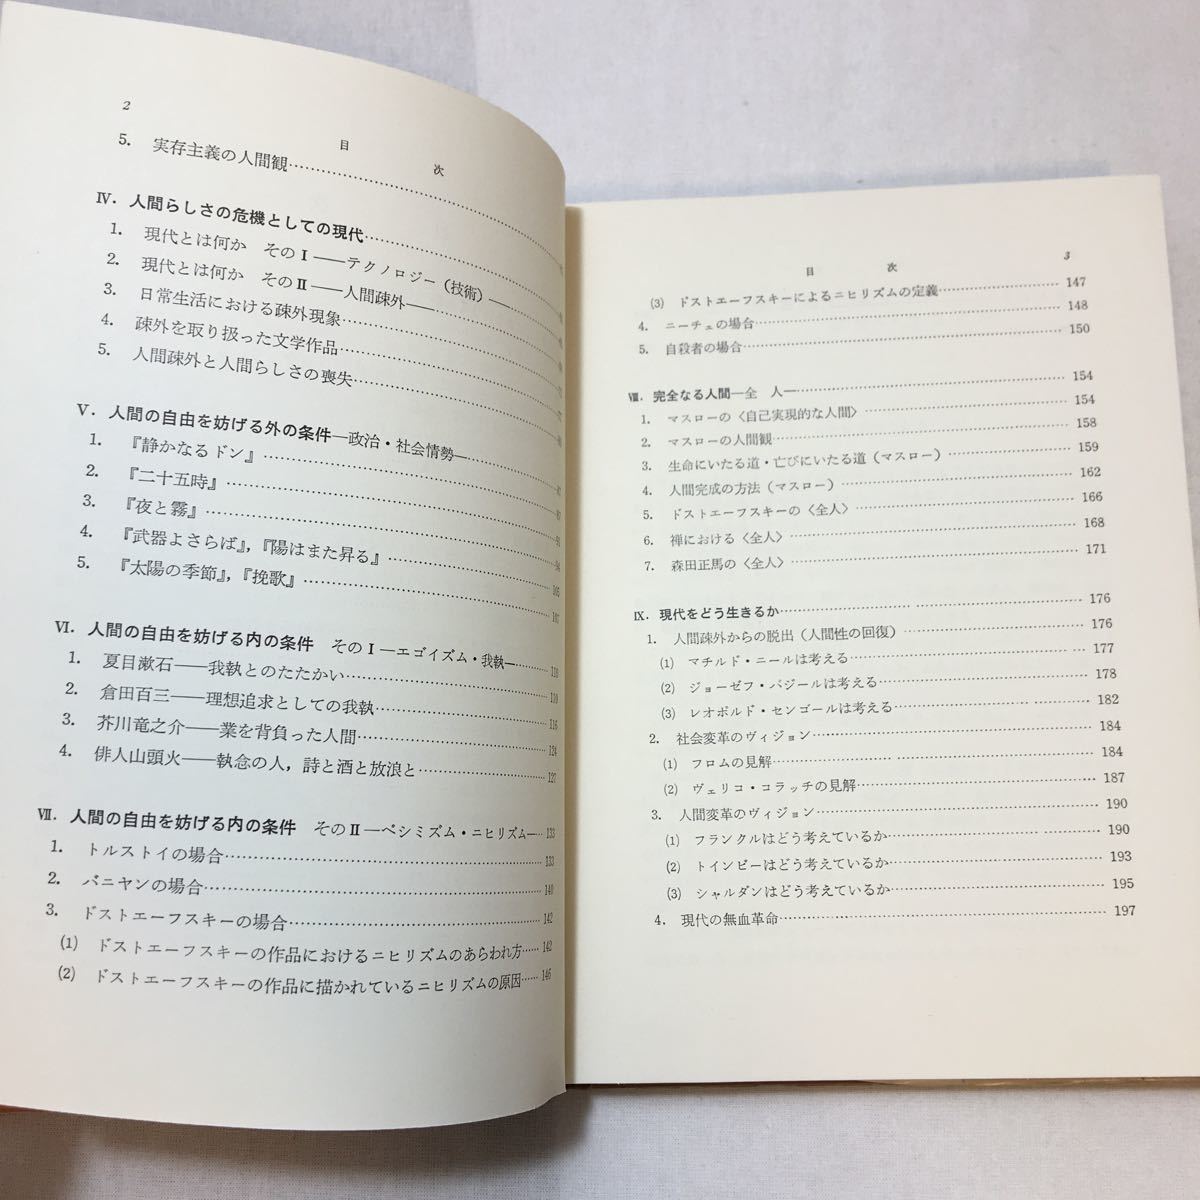 2
目 次
5. 実存主義の人間観
Ⅳ. 人間らしさの危機としての現代
1. 現代とは何か その Ⅰ ——テクノロジー(技術)——
2. 現代とは何か その Ⅱ ——人間疎外——
3. 日常生活における疎外現象
4. 疎外を取り扱った文学作品
5. 人間疎外と人間らしさの喪失
Ⅴ. 人間の自由を妨げる外の条件—政治・社会情勢—
1. 『静かなるドン』
2. 『二十五時』
3. 『夜と霧』
4. 『武器よさらば』,『陽はまた昇る』
5. 『太陽の季節』,『挽歌』
Ⅵ. 人間の自由を妨げる内の条件 その Ⅰ —エゴイズム・我執—
1. 夏目漱石——我執とのたたかい
2. 倉田百三——理想追求としての我執 116
3. 芥川竜之介——業を背負った人間 124
4. 俳人山頭火——執念の人,詩と酒と放浪と 127
Ⅶ. 人間の自由を妨げる内の条件 その Ⅱ —ペシミズム・ニヒリズム— 133
1. トルストイの場合 133
2. バニヤンの場合 140
3. ドストエーフスキーの場合 142
(1) ドストエーフスキーの作品におけるニヒリズムのあらわれ方 142
(2) ドストエーフスキーの作品に描かれているニヒリズムの原因 146
目 次 3
(3) ドストエーフスキーによるニヒリズムの定義 147
4. ニーチェの場合 148
5. 自殺者の場合 150
Ⅷ. 完全なる人間—全 人— 154
1. マスローの〈自己実現的な人間〉 154
2. マスローの人間観 158
3. 生命にいたる道・亡びにいたる道(マスロー) 159
4. 人間完成の方法(マスロー) 162
5. ドストエーフスキーの〈全人〉 166
6. 禅における〈全人〉 168
7. 森田正馬の〈全人〉 171
Ⅸ. 現代をどう生きるか 176
1. 人間疎外からの脱出(人間性の回復) 176
(1) マチルド・ニールは考える 177
(2) ジョーゼフ・バジールは考える 178
(3) レオポルド・センゴールは考える 182
2. 社会変革のヴィジョン 184
(1) フロムの見解 184
(2) ヴェリコ・コラッチの見解 187
3. 人間変革のヴィジョン 190
(1) フランクルはどう考えているか 190
(2) トインビーはどう考えているか 193
(3) シャルダンはどう考えているか 195
4. 現代の無血革命 197